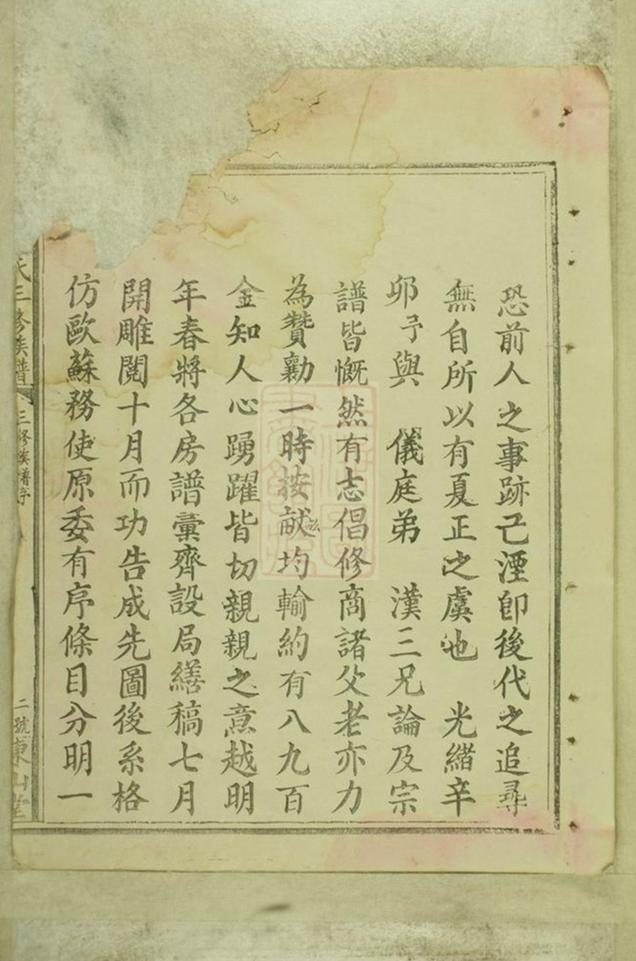 恐前人之事跡已湮卽後代之追尋
無自所以有夏正之虞也　光緒辛
卯予與　儀庭弟　漢三兄論及宗
譜皆慨然有志倡修商諸父老亦力
為贊勷一時按畝均輸約有八九百
金知人心踴躍皆切親親之意越明
年春將各房譜彙齊設局繕稿七月
開雕閱十月而功告成先圖後系格
仿歐蘇務使原委有序條目分明一
氏三修族譜
三修族譜序
二號東山堂